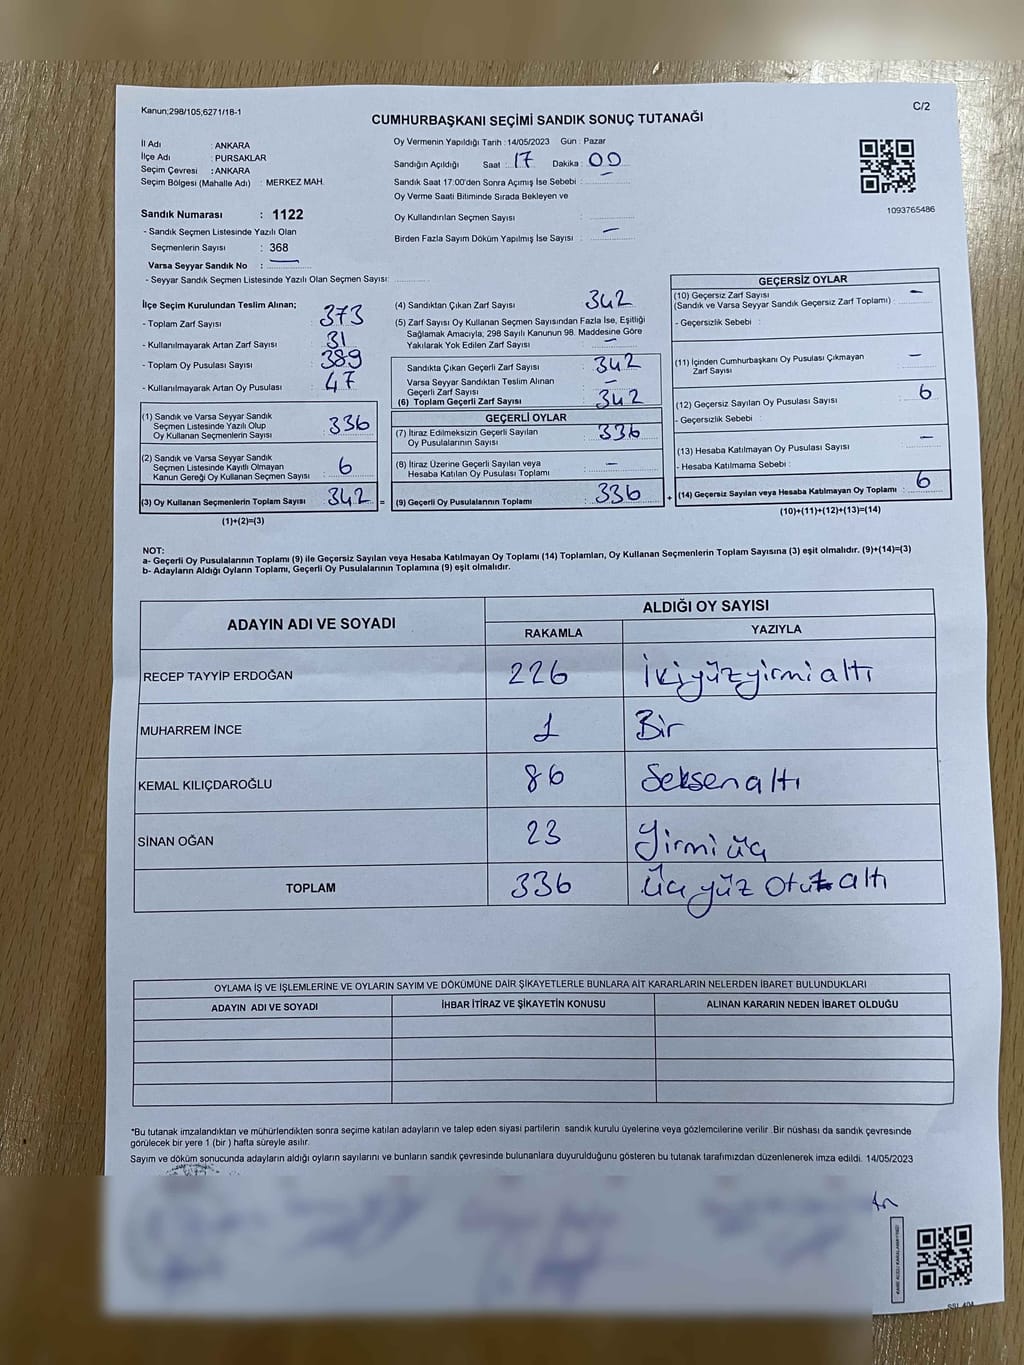 Kanun;298/105;6271/18-1
C/2
CUMHURBAŞKANI SEÇİMİ SANDIK SONUÇ TUTANAĞI
İl Adı : ANKARA
İlçe Adı : PURSAKLAR
Seçim Çevresi : ANKARA
Seçim Bölgesi (Mahalle Adı) : MERKEZ MAH.
Sandık Numarası : 1122
- Sandık Seçmen Listesinde Yazılı Olan
Seçmenlerin Sayısı : 368
Varsa Seyyar Sandık No : —
- Seyyar Sandık Seçmen Listesinde Yazılı Olan Seçmen Sayısı:
Oy Vermenin Yapıldığı Tarih : 14/05/2023 Gün : Pazar
Sandığın Açıldığı Saat : 17 Dakika : 00
Sandık Saat 17:00'den Sonra Açımış İse Sebebi : —
Oy Verme Saati Bitiminde Sırada Bekleyen ve
Oy Kullandırılan Seçmen Sayısı :
Birden Fazla Sayım Döküm Yapılmış İse Sayısı : —
1093765486
İlçe Seçim Kurulundan Teslim Alınan;
- Toplam Zarf Sayısı : 373
- Kullanılmayarak Artan Zarf Sayısı : 31
- Toplam Oy Pusulası Sayısı : 389
- Kullanılmayarak Artan Oy Pusulası : 47
(1) Sandık ve Varsa Seyyar Sandık
Seçmen Listesinde Yazılı Olup
Oy Kullanan Seçmenlerin Sayısı : 336
(2) Sandık ve Varsa Seyyar Sandık
Seçmen Listesinde Kayıtlı Olmayan
Kanun Gereği Oy Kullanan Seçmen Sayısı : 6
(3) Oy Kullanan Seçmenlerin Toplam Sayısı : 342 =
(1)+(2)=(3)
(4) Sandıktan Çıkan Zarf Sayısı : 342
(5) Zarf Sayısı Oy Kullanan Seçmen Sayısından Fazla İse, Eşitliği
Sağlamak Amacıyla; 298 Sayılı Kanunun 98. Maddesine Göre
Yakılarak Yok Edilen Zarf Sayısı : —
Sandıkta Çıkan Geçerli Zarf Sayısı : 342
Varsa Seyyar Sandıktan Teslim Alınan
Geçerli Zarf Sayısı : —
(6) Toplam Geçerli Zarf Sayısı : 342
GEÇERLİ OYLAR
(7) İtiraz Edilmeksizin Geçerli Sayılan
Oy Pusulalarının Sayısı : 336
(8) İtiraz Üzerine Geçerli Sayılan veya
Hesaba Katılan Oy Pusulası Toplamı : —
(9) Geçerli Oy Pusulalarının Toplamı : 336 +
GEÇERSİZ OYLAR
(10) Geçersiz Zarf Sayısı
(Sandık ve Varsa Seyyar Sandık Geçersiz Zarf Toplamı) : —
- Geçersizlik Sebebi :
(11) İçinden Cumhurbaşkanı Oy Pusulası Çıkmayan
Zarf Sayısı : —
(12) Geçersiz Sayılan Oy Pusulası Sayısı : 6
- Geçersizlik Sebebi :
(13) Hesaba Katılmayan Oy Pusulası Sayısı : —
- Hesaba Katılmama Sebebi :
(14) Geçersiz Sayılan veya Hesaba Katılmayan Oy Toplamı : 6
(10)+(11)+(12)+(13)=(14)
NOT:
a- Geçerli Oy Pusulalarının Toplamı (9) ile Geçersiz Sayılan veya Hesaba Katılmayan Oy Toplamı (14) Toplamları, Oy Kullanan Seçmenlerin Toplam Sayısına (3) eşit olmalıdır. (9)+(14)=(3)
b- Adayların Aldığı Oyların Toplamı, Geçerli Oy Pusulalarının Toplamına (9) eşit olmalıdır.
ADAYIN ADI VE SOYADI ALDIĞI OY SAYISI
RAKAMLA YAZIYLA
RECEP TAYYİP ERDOĞAN 226 İkiyüzyirmialtı
MUHARREM İNCE 1 Bir
KEMAL KILIÇDAROĞLU 86 Seksenaltı
SİNAN OĞAN 23 Yirmiüç
TOPLAM 336 Üçyüz otuz altı
OYLAMA İŞ VE İŞLEMLERİNE VE OYLARIN SAYIM VE DÖKÜMÜNE DAİR ŞİKAYETLERLE BUNLARA AİT KARARLARIN NELERDEN İBARET BULUNDUKLARI
ADAYIN ADI VE SOYADI İHBAR İTİRAZ VE ŞİKAYETİN KONUSU ALINAN KARARIN NEDEN İBARET OLDUĞU
*Bu tutanak imzalandıktan ve mühürlendikten sonra seçime katılan adayların ve talep eden siyasi partilerin sandık kurulu üyelerine veya gözlemcilerine verilir .Bir nüshası da sandık çevresinde
görülecek bir yere 1 (bir ) hafta süreyle asılır.
Sayım ve döküm sonucunda adayların aldığı oyların sayılarını ve bunların sandık çevresinde bulunanlara duyurulduğunu gösteren bu tutanak tarafımızdan düzenlenerek imza edildi. 14/05/2023